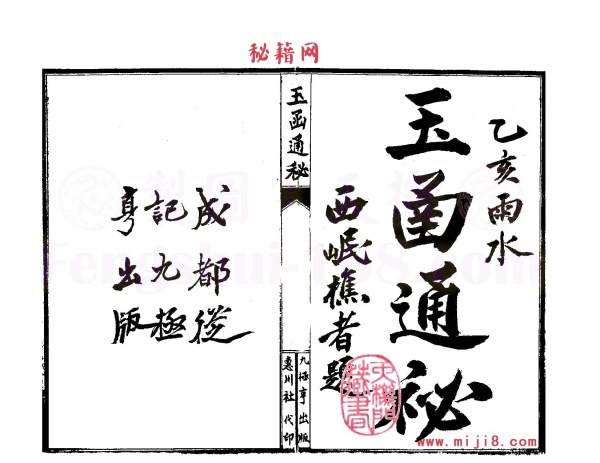 秘籍网
乙亥雨水
玉函通秘
西岷樵者題
www.miji8.com
玉函通秘
九極亨出版
惠川社代印
成都從
記九極
亨出版
Fengshui-168.com